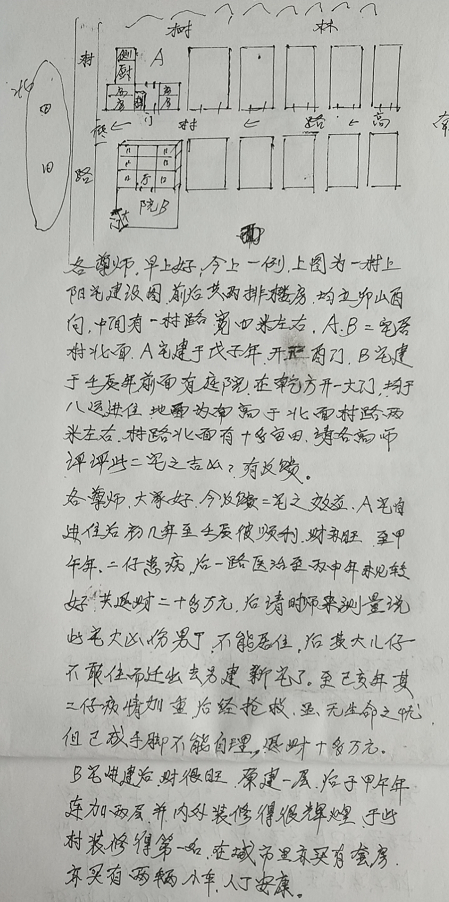 树 林
村
A
侧
厨
房
房
门
北
田
田
低 ← 村 ← 路 ← 高 南
路
厅
院B
各尊师,早上好,今上一例,上图为一村上
阳宅建设图,前后共两排楼房,均立卯山酉
向,中间有一村路宽四米左右,A.B=宅居
村北面.A宅建于戊子年,开酉门,B宅建
于壬辰年前面有庭院,在乾方开一大门,均于
八运进住,地面为南高于北面村路两
米左右,村路北面有十多亩田,请各高师
评评此二宅之吉凶?有反馈。
各尊师,大家好,今反馈二宅之效益.A宅自
进住后初几年至壬辰很顺利,财亦旺,至甲
午年,二仔患病,后一路医治至丙申年未见较
好,共退财二十多万元,后请时师来测量说
此宅大凶,伤男丁,不能居住,后其大儿仔
不敢住而迁出去另建新宅了.至己亥年其
二仔病情加重后经抢救,虽无生命之忧
但已成手脚不能自理,退财十多万元。
B宅进建后,财很旺,原建一层,后于甲午年
连加两层,并内外装修得很辉煌,于此
村装修得第一名.在城市里亦买有套房,
亦买有两辆小车,人丁安康。